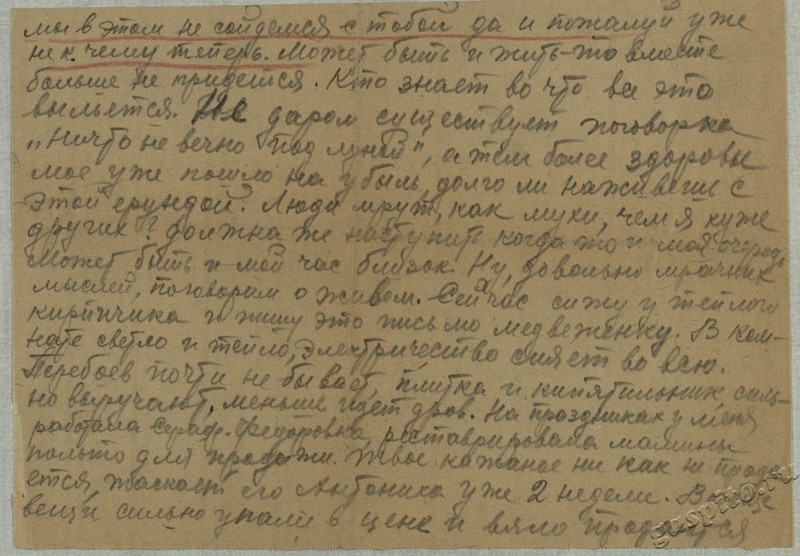 мы в этом не сойдемся с тобой да и пожалуй уже
не к чему теперь. Может быть и жить-то вместе
больше не придется. Кто знает во что все это
выльется. Не даром существует поговорка
„Ничто не вечно под луной“, а тем более здоровье
мое уже пошло на убыль, долго ли наживеш с
этой ерундой. Люди мрут, как мухи, чем я хуже
других? должна же наступить когда то и моя очередь
Может быть и мой час близок. Ну, довольно мрачных
мыслей, поговорим о живом. Сейчас сижу у теплого
кирпичика и пишу это письмо медвеженку. В ком-
нате светло и тепло, электричество сияет во всю.
Перебоев почти не бывает, плитка и кипятильник силь-
но выручают, меньше идет дров. На праздниках у меня
работала Сераф. Федоровна, реставрировала мамины
польто для продажи. Твое кожаное ни как не прода-
ется, таскает его Антоника уже 2 недели. Вообще
вещи сильно упали в цене и вяло продаются
gaspito.ru